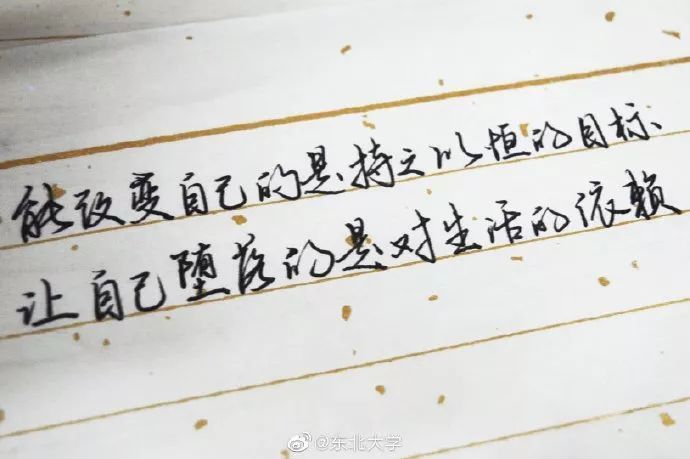 能改变自己的是持之以恒的目标、
让自己堕落的是对生活的依赖
@东北大学